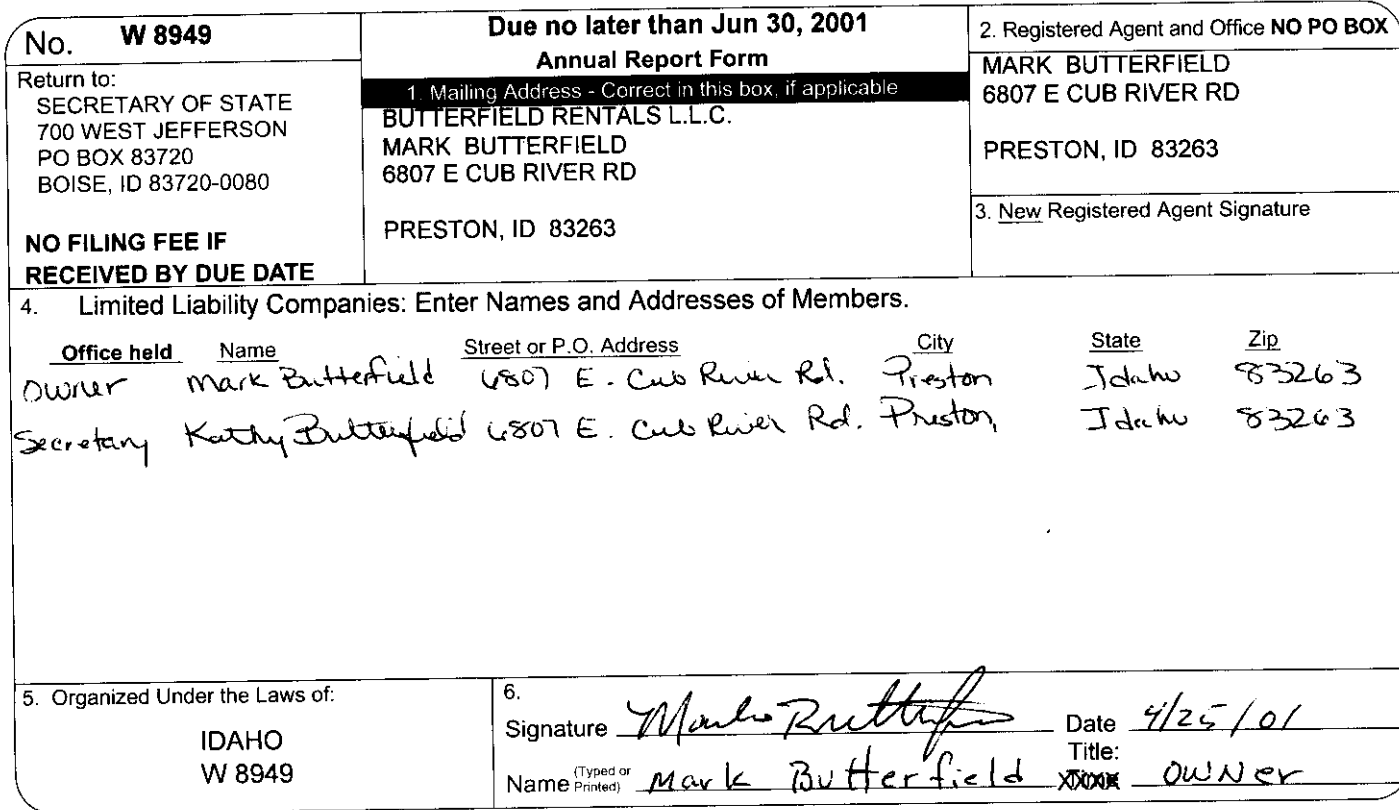 No. W 8949
Return to:
SECRETARY OF STATE
700 WEST JEFFERSON
PO BOX 83720
BOISE, ID 83720-0080
NO FILING FEE IF
RECEIVED BY DUE DATE
Due no later than Jun 30, 2001
Annual Report Form
1. Mailing Address - Correct in this box, if applicable
BUTTERFIELD RENTALS L.L.C.
MARK BUTTERFIELD
6807 E CUB RIVER RD
PRESTON, ID 83263
2. Registered Agent and Office NO PO BOX
MARK BUTTERFIELD
6807 E CUB RIVER RD
PRESTON, ID 83263
3. New Registered Agent Signature
4. Limited Liability Companies: Enter Names and Addresses of Members.
Office held Name Street or P.O. Address City State Zip
Owner Mark Butterfield 6807 E. Cub River Rd. Preston Idaho 83263
Secretary Kathy Butterfield 6807 E. Cub River Rd. Preston, Idaho 83263
5. Organized Under the Laws of:
IDAHO
W 8949
6.
Signature Mark Butterfield Date 4/25/01
Title:
Name (Typed or Printed) Mark Butterfield Owner